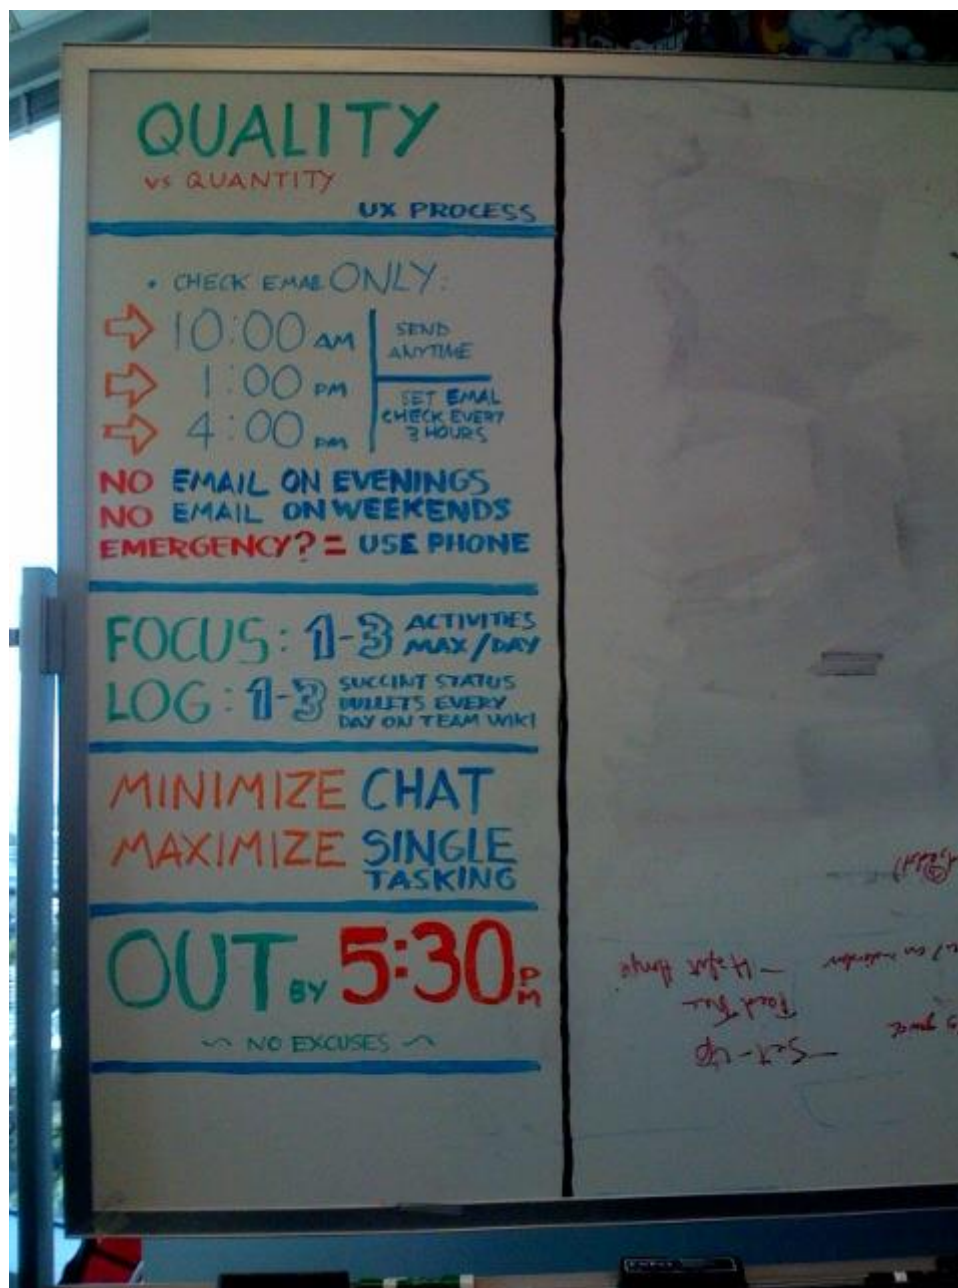 QUALITY
vs QUANTITY
UX PROCESS
• CHECK EMAIL ONLY:
10:00 AM
1:00 PM
4:00 PM
SEND
ANYTIME
SET EMAIL
CHECK EVERY
3 HOURS
NO EMAIL ON EVENINGS
NO EMAIL ON WEEKENDS
EMERGENCY? = USE PHONE
FOCUS: 1-3 ACTIVITIES
MAX/DAY
LOG: 1-3 SUCCINT STATUS
BULLETS EVERY
DAY ON TEAM WIKI
MINIMIZE CHAT
MAXIMIZE SINGLE
TASKING
OUT BY 5:30 PM
~ NO EXCUSES ~
- Set-up